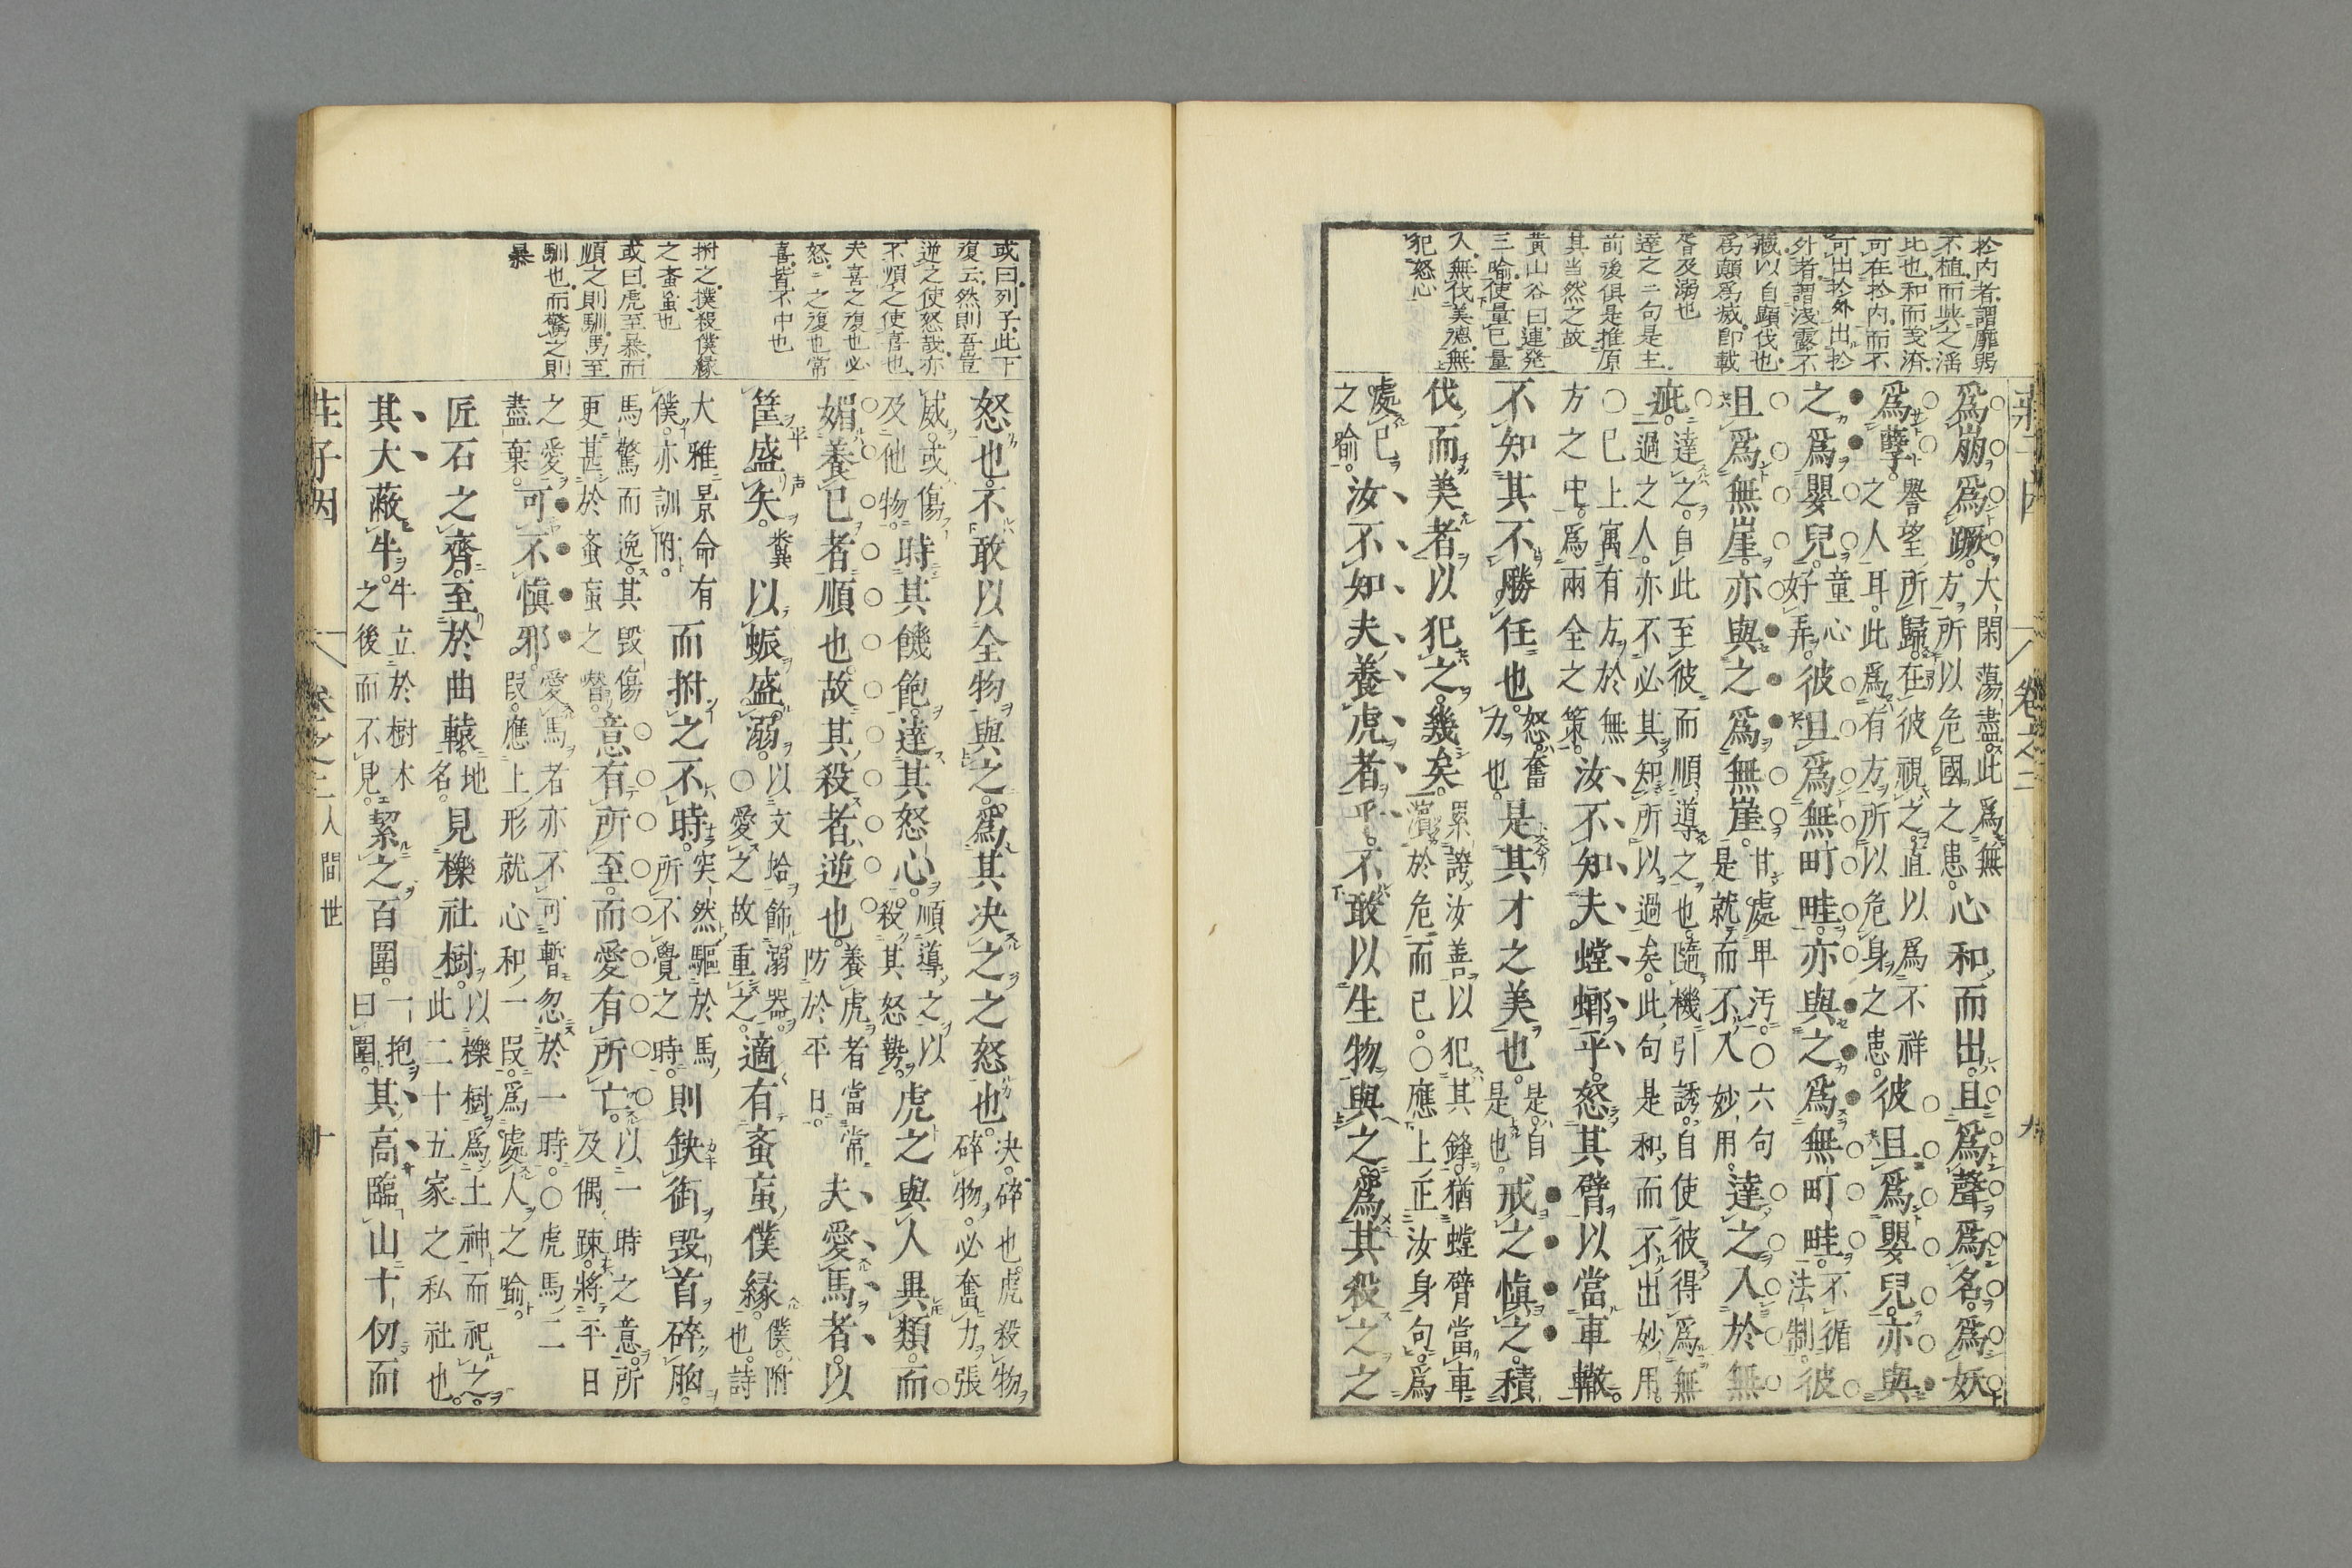 於内者謂靡弱
不植而與之淫
比也和而義濟
可在於内而不
可出於外出於
外者謂淺露不
藏以自顯伐也
爲顛爲滅即載
胥及溺也
達之二句是主
前後俱是推原
其当然之故
黄山谷曰連発
三喩使量已量
人無伐美德無
犯怒心
莊子因 卷之二 九
爲崩爲蹶。大閑蕩盡。此爲無
方所以危國之患。心和而出。且爲聲爲名。爲妖
爲孽。譽望所歸。在彼視之。直以爲不祥
之人耳。此爲有方所以危身之患。彼且爲嬰兒。亦與
之爲嬰兒。童心
好弄。彼且爲無町畦。亦與之爲無町畦。不循
法制。彼
且爲無崖。亦與之爲無崖。甘處卑汚。〇六句
是就而不入妙用。達之入於無
疵。達之。自此至彼而順導之也。隨機引誘。自使彼得爲無
過之人。亦不必其知所以過矣。此句是和而不出妙用。
〇已上寓有方於無
方之中。爲兩全之策。汝不知夫螳螂乎。怒其臂以當車轍。
不知其不勝任也。怒奮
力也。是其才之美也。是自
是也。戒之愼之。積
伐而美者以犯之。幾矣。累誇汝善以犯其鋒。猶螳臂當車
濱於危而已。〇應上正汝身句。爲
處已
之喩。汝不知夫養虎者乎。不敢以生物與之。爲其殺之之
或曰列子此下
復云然則吾豈
逆之使怒哉亦
不順之使喜也
夫喜之復也必
怒之復也常
喜皆不中也
拊之撲殺僕緣
之蚉䖟也
或曰虎至暴而
順之則馴馬至
馴也而驚之則
暴
怒也。不敢以全物與之。爲其决之之怒也。决。碎也。虎殺物。
碎物。必奮力張
威。或傷
及他物。時其饑飽。達其怒心。順導之以
殺其怒勢。虎之與人異類。而
媚養已者。順也。故其殺者。逆也。養虎者當
防於平日。常夫愛馬者。以
筐盛矢。糞以蜄盛溺。以文蛤飾溺器。
〇愛之故重之。適有蚉䖟僕緣。僕。附
也。詩
大雅景命有
僕。亦訓附。而拊之不時。突然驅於馬
所不覺之時。則缺銜毀首碎胸。
馬驚而逸。其毀傷
更甚於蚉䖟之㗱。意有所至。而愛有所亡。以一時之意。所
及偶踈。將平日
之愛
盡棄。可不愼邪。愛馬者亦不可暫忽於一時。〇虎馬二
段。應上形就心和一段。爲處人之喩。
匠石之齊。至於曲轅。地
名。見櫟社樹。以櫟樹爲土神而祀之。
此二十五家之私社也。
其大蔽牛。牛立於樹木
之後而不見。絜之百圍。一抱
曰圍。其高臨山十仞而
莊子因 卷之二人間世 十